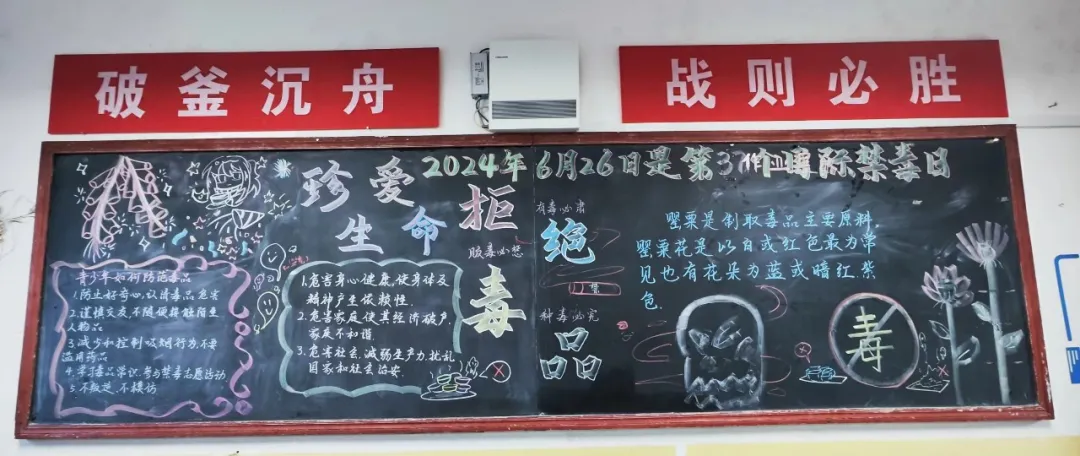 破釜沉舟
战则必胜
2024年6月26日是第37个国际禁毒日
珍爱
生命
拒
绝
毒
品
有毒必肃
贩毒必惩
种毒必究
青少年如何防范毒品
1.防止好奇心,认清毒品危害
2.谨慎交友,不随便接触陌生
人物品
3.减少和控制吸烟行为,不要
滥用药品
4.学习毒品常识,参与禁毒志愿活动
5.不效仿,不模仿
1.危害身心健康,使身体及
精神产生依赖性.
2.危害家庭使其经济破产,
家庭不和谐.
3.危害社会,减弱生产力,扰乱
国家和社会治安.
罂粟是制取毒品主要原料.
罂粟花是以白或红色最为常
见也有花朵为蓝或暗红紫
色.
毒